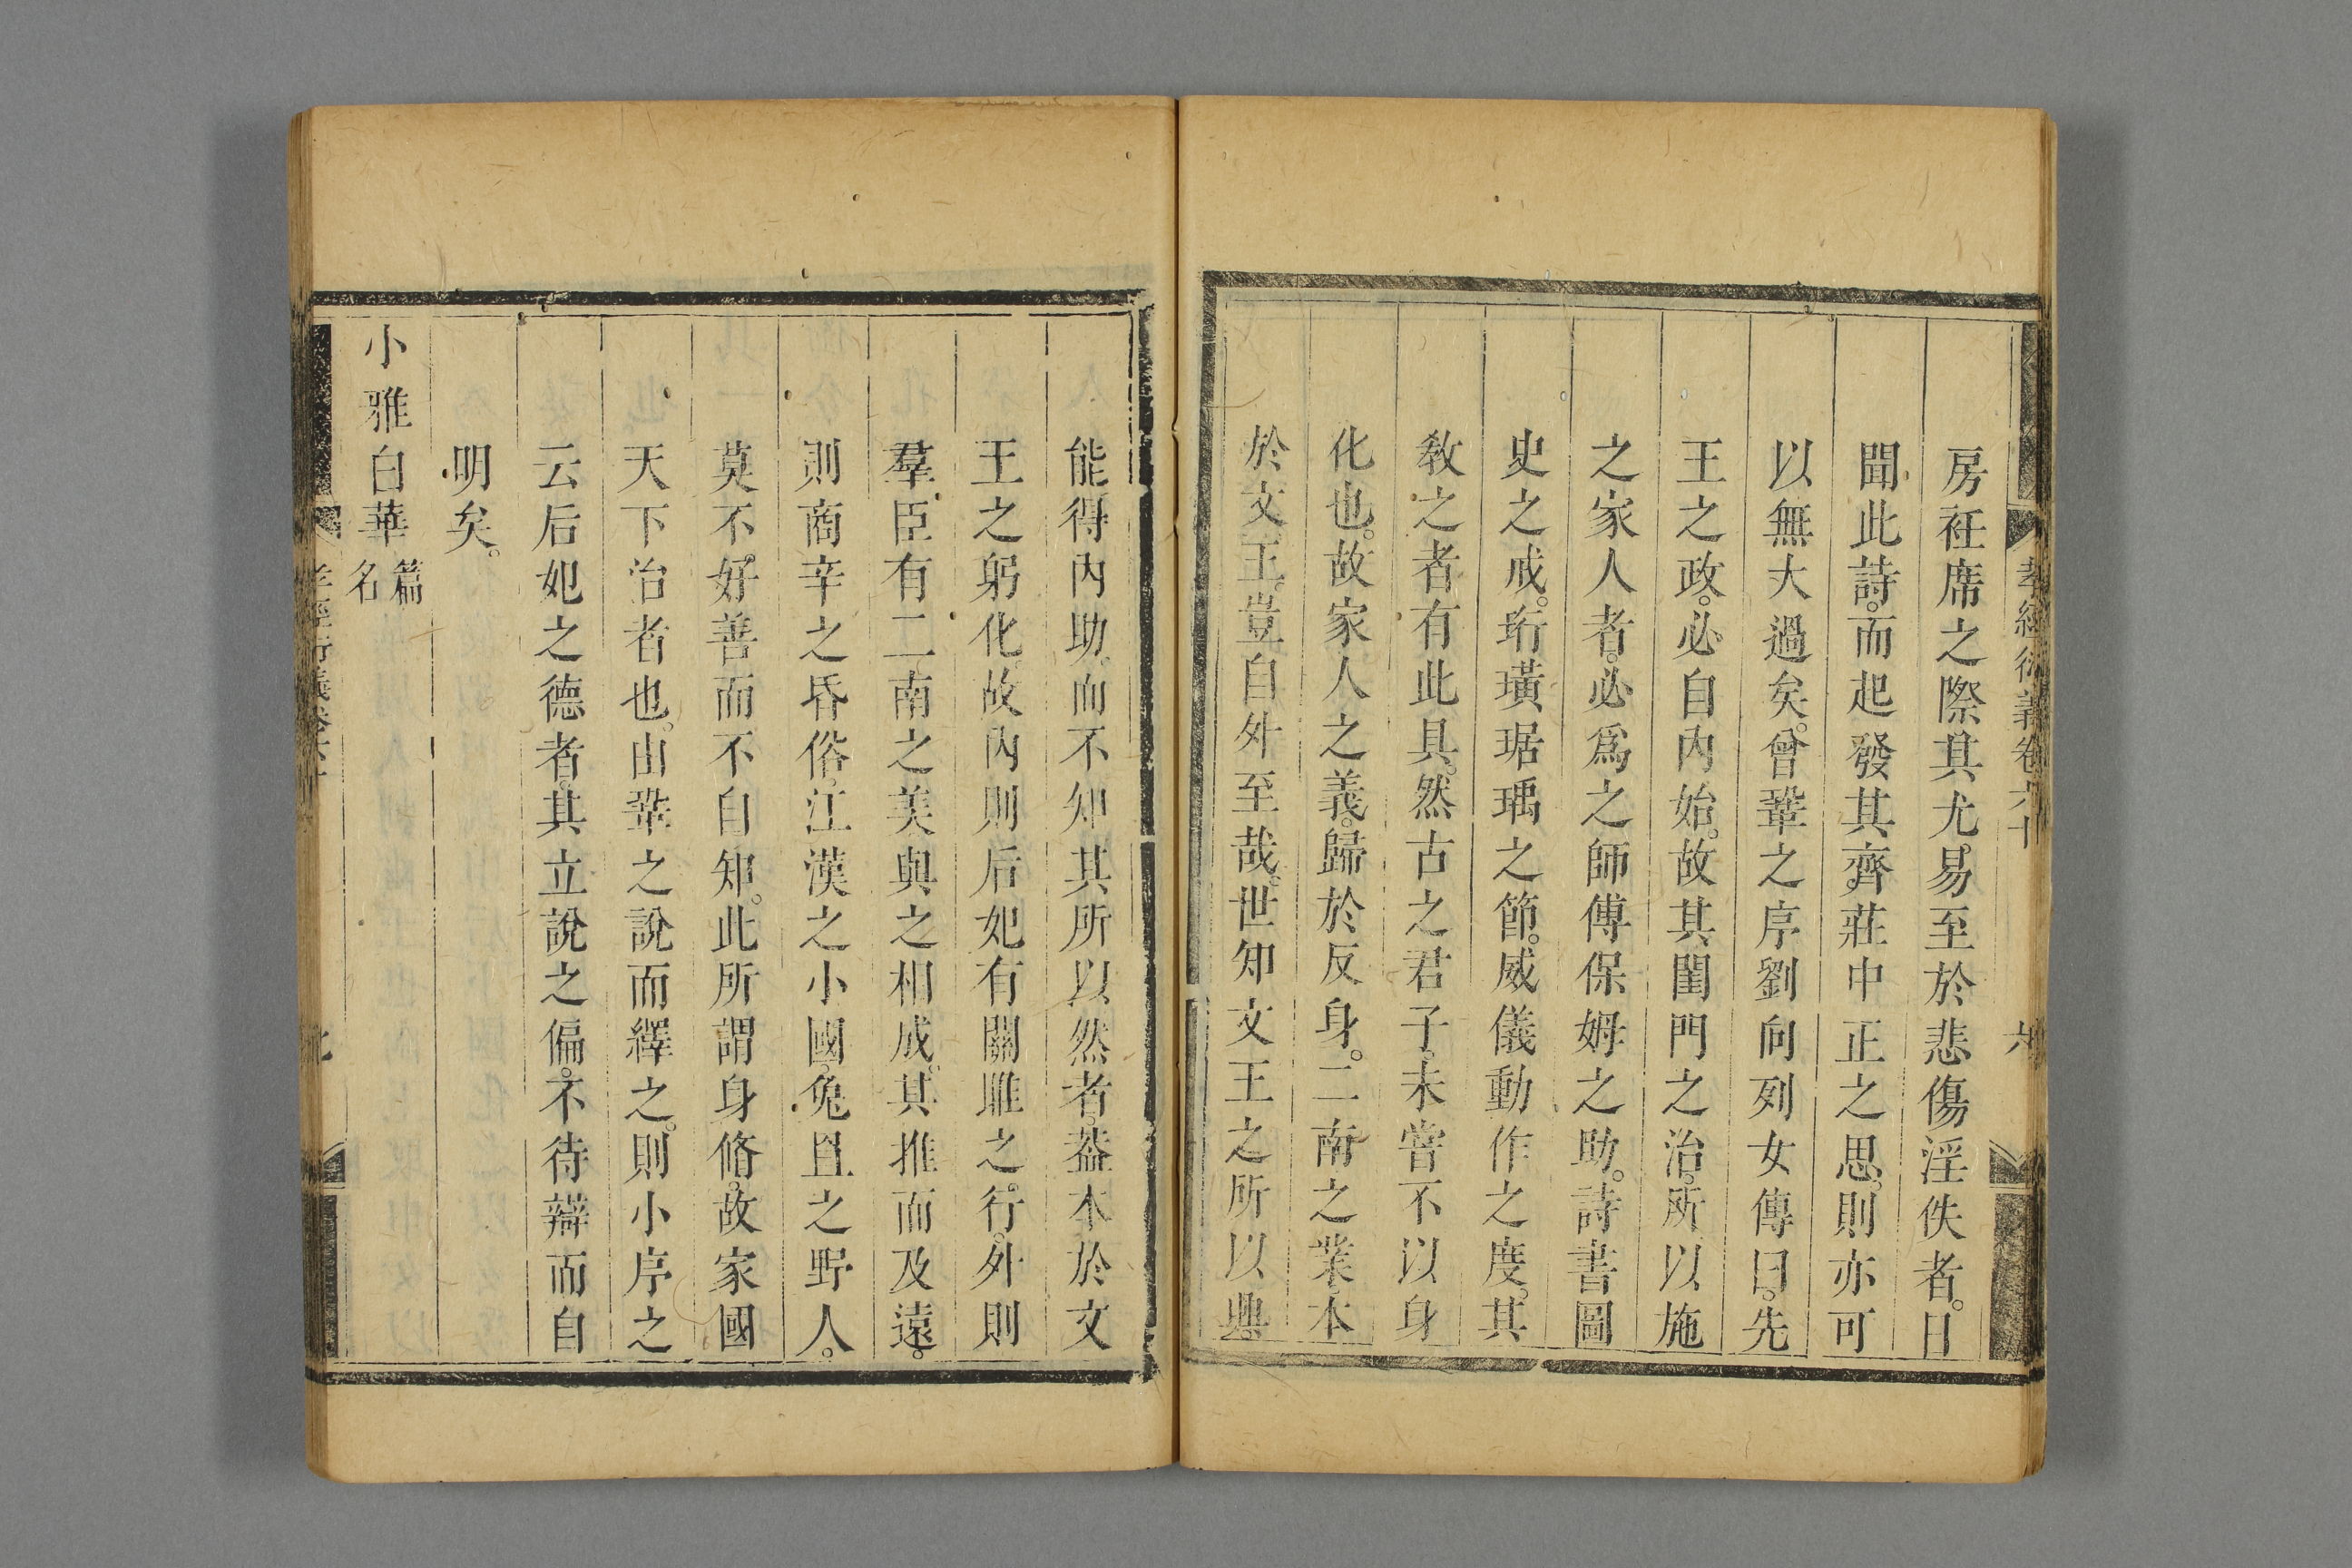 孝經衍義卷六十 六
房衽席之際其尤易至於悲傷淫佚者。日
聞此詩。而起發其齊莊中正之思。則亦可
以無大過矣。曾鞏之序劉向列女傳曰。先
王之政。必自內始。故其閨門之治。所以施
之家人者。必爲之師傅保姆之助。詩書圖
史之戒。珩璜琚瑀之節。威儀動作之度。其
敎之者有此具。然古之君子。未嘗不以身
化也。故家人之義。歸於反身。二南之業。本
於文王。豈自外至哉。世知文王之所以興
能得內助。而不知其所以然者。葢本於文
王之躬化。故內則后妃有關雎之行。外則
羣臣有二南之美與之相成。其推而及遠。
則商辛之昏俗。江漢之小國。兔罝之野人。
莫不好善而不自知。此所謂身脩。故家國
天下治者也。由鞏之說而繹之。則小序之
云后妃之德者。其立說之偏。不待辯而自
明矣。
小雅白華篇名